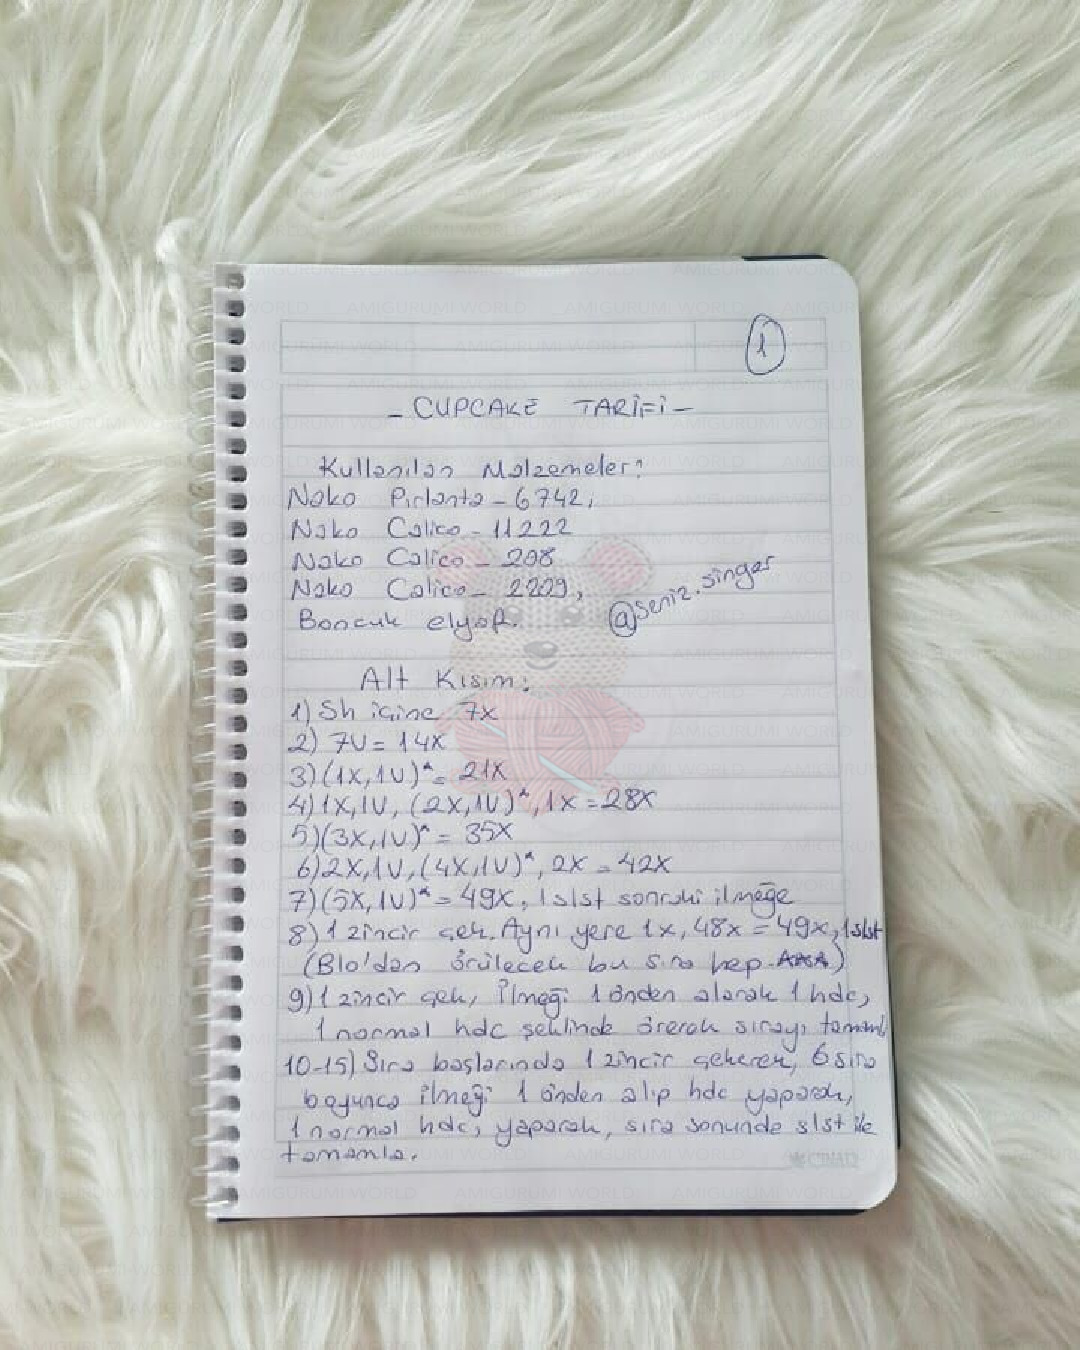 1
- CUPCAKE TARİFİ -
Kullanılan Malzemeler:
Nako Pırlanta - 6742,
Nako Calico - 11222
Nako Calico - 208
Nako Calico - 2209,
Boncuk elyaf.
@seniz.singer
Alt Kısım:
1) Sh içine 7x
2) 7V = 14X
3) (1X, 1V)* = 21X
4) 1X, 1V, (2X, 1V)*, 1X = 28X
5) (3X, 1V)* = 35X
6) 2X, 1V, (4X, 1V)*, 2X = 42X
7) (5X, 1V)* = 49X, 1 slst sonraki ilmeğe
8) 1 zincir çek, Aynı yere 1x, 48x = 49x, 1slst
(Blo'dan örülecek bu sıra hep)
9) 1 zincir çek, İlmeği 1 önden alarak 1 hdc,
1 normal hdc şeklinde örerek sırayı tamaml
10-15) Sıra başlarında 1 zincir çekerek, 6 sıra
boyunca ilmeği 1 önden alıp hdc yaparak,
1 normal hdc, yaparak, sıra sonunda slst ile
tamamla.
AMIGURUMI WORLD